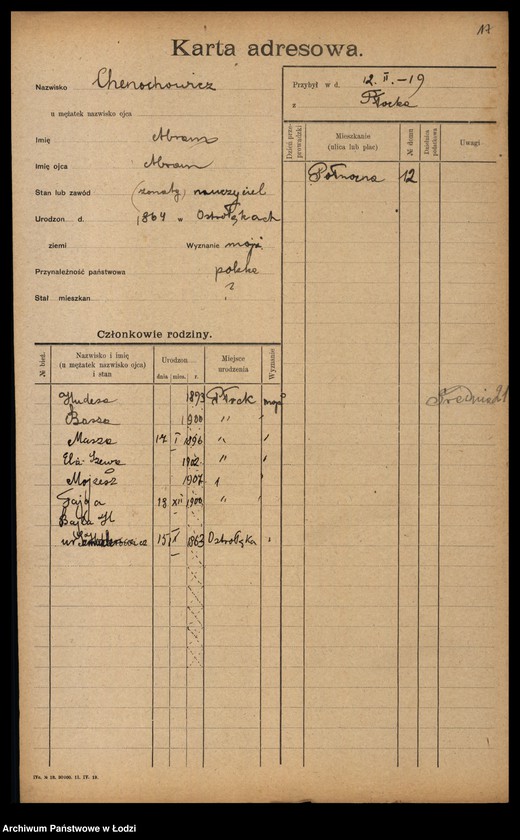 17
Karta adresowa.
Nazwisko Chenochowicz
u mężatek nazwisko ojca
Imię Abram
Imię ojca Abram
Stan lub zawód (żonaty) nauczyciel
Urodzon d. 1864 w Ostrołękach
ziemi Wyznanie mojż.
Przynależność państwowa polska
Stał. mieszkan ?
Przybył w d. 12. II. - 19
z Płocka
Dzień przeprowadzki
Mieszkanie (ulica lub plac)
№ domu
Dzielnica
Uwagi
Północna 12
Średnia 21
Członkowie rodziny.
№ bież.
Nazwisko i imię (u mężatek nazwisko ojca) i stan
Urodzon...
dnia mies. r.
Miejsce urodzenia
Wyznanie
Hudesa 1893 Płock mojż
Basza 1900 "
Masza 17 I 1896 "
1902 "
Mojżesz 1907
Fajga 13 XII 1900 "
Bajla
ur. 15 1863 Ostrołęka
Archiwum Państwowe w Łodzi